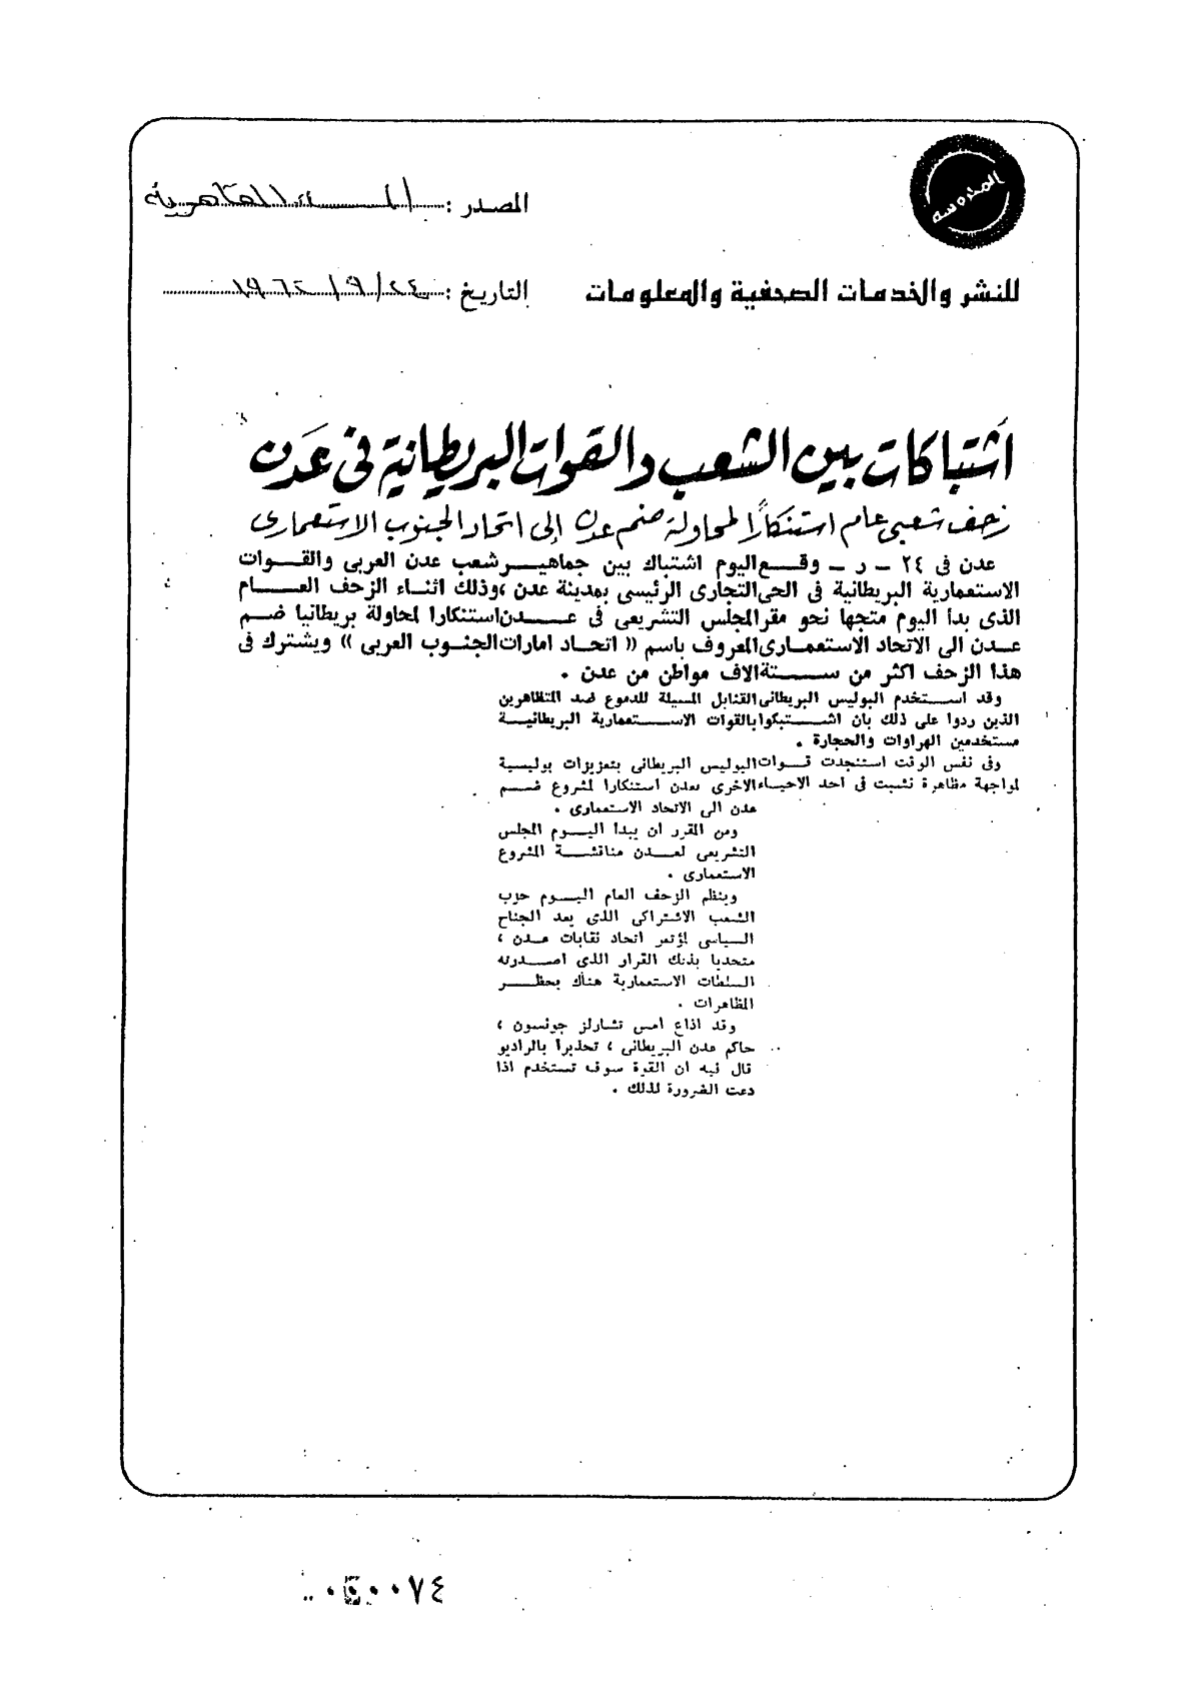 المحروسة
المصدر : المساء القاهرية
للنشر والخدمات الصحفية والمعلومات
التاريخ : ٢٤/ ٩/ ١٩٦٢
اشتباكات بين الشعب والقوات البريطانية فى عدن
زحف شعبى عام استنكارًا لمحاولة ضم عدن إلى اتحاد الجنوب الاستعمارى
عدن فى ٢٤ - ر - وقـــع اليوم اشتباك بين جماهيـــر شعب عدن العربى والقـــوات
الاستعمارية البريطانية فى الحى التجارى الرئيسى بمدينة عدن ، وذلك اثنـاء الزحف العـــام
الذى بدأ اليوم متجها نحو مقر المجلس التشريعى فى عـــدن استنكارا لمحاولة بريطانيا ضـــم
عـــدن الى الاتحاد الاستعمـــارى المعروف باسم (( اتحـاد امارات الجنـوب العربى )) ويشترك فى
هذا الزحف اكثر من ســـتة الاف مواطن من عدن .
وقد استـــخدم البوليس البريطانى القنابل المسيلة للدموع ضد المتظاهرين
الذين ردوا على ذلك بان اشـــتبكوا بالقوات الاســـتعمارية البريطانيـــة
مستخدمين الهراوات والحجارة .
وفى نفس الوقت استنجدت قـــوات البوليس البريطانى بتعزيزات بوليسية
لمواجهة مظاهرة نشبت فى احد الاحياء الاخرى بعدن استنكارا لمشروع ضـــم
عدن الى الاتحاد الاستعمارى .
ومن المقرر ان يبدأ اليـــوم المجلس
التشريعى لعـــدن مناقشـــة المشروع
الاستعمارى .
وينظم الزحف العام اليـــوم حزب
الشعب الاشتراكى الذى يعد الجناح
السياسى لمؤتمر اتحاد نقابات عـدن ،
متحديا بذلك القرار الذى اصـــدرته
السلطات الاستعمارية هناك بحظـــر
المظاهرات .
وقد اذاع امس تشارلز جونسون ،
حاكم عدن البريطانى ، تحذيرا بالراديو
قال فيه ان القوة سوف تستخدم اذا
دعت الضرورة لذلك .